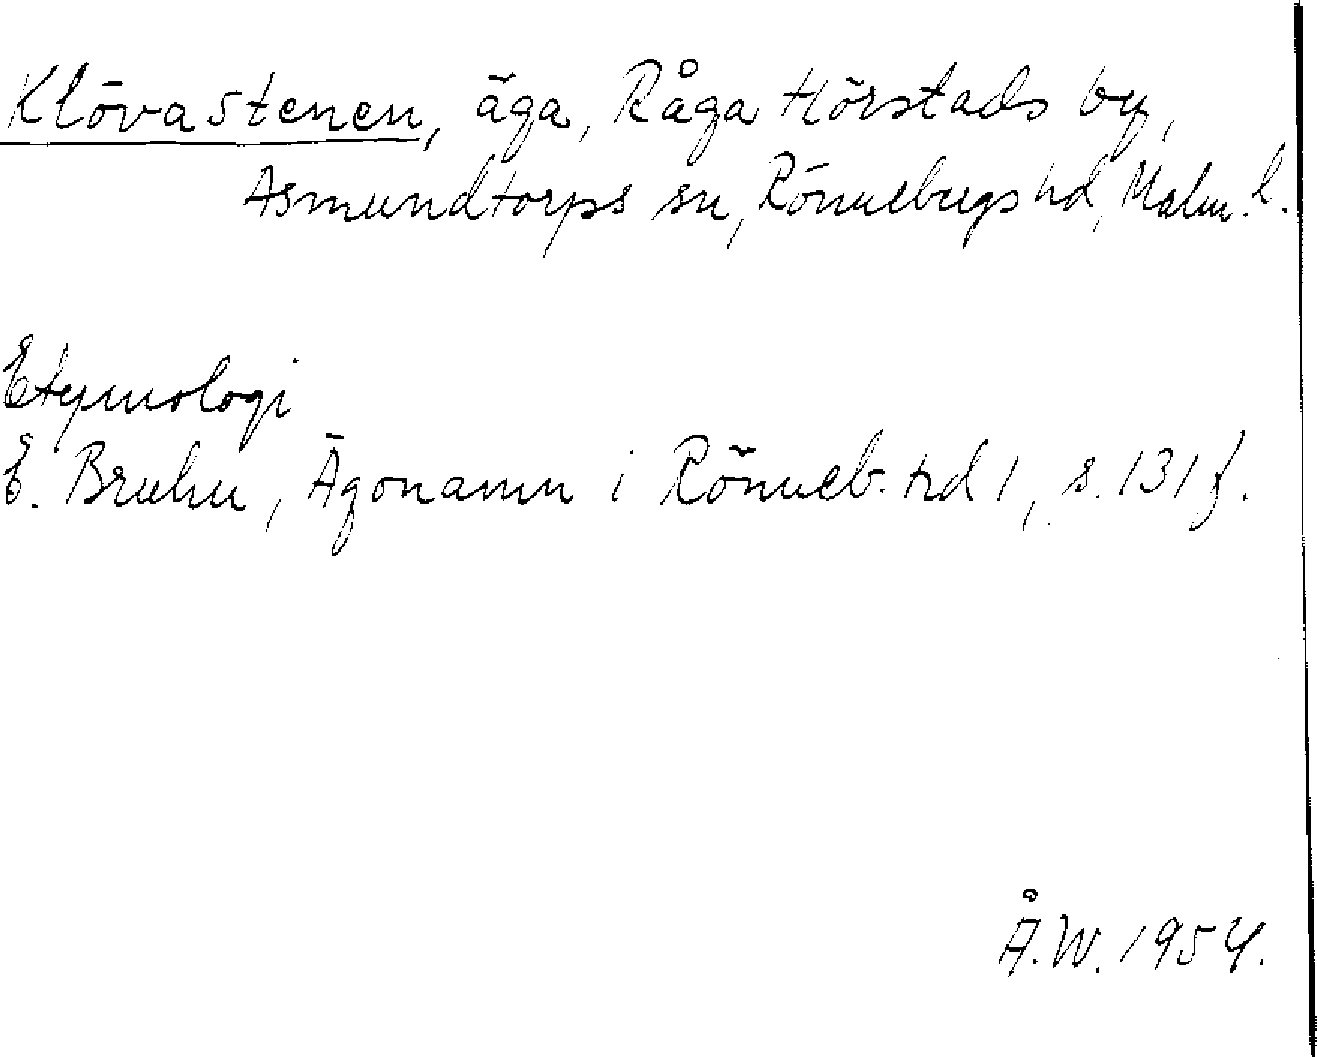 Klövastenen, äga, Råga Hörstads by,
Asmundtorps sn, Rönnebergs hd, Malm. l.
Etymologi
E. Bruhn, Ägonamn i Rönneb. hd 1, s. 131 f.
Å.W. 1954.